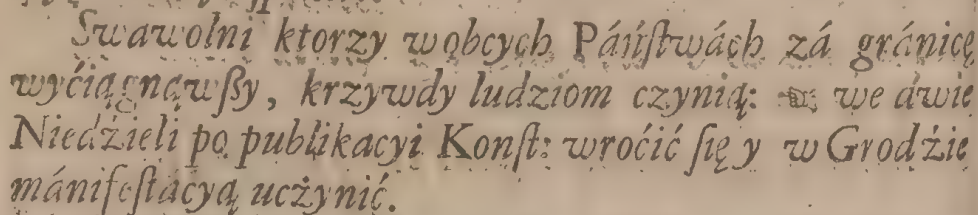 Swawolni ktorzy wobcych Páńſtwách zá gránicę
wyćiągnąwſzy, krzywdy ludziom czynią: ☞ we dwie
Niedźieli po publikacyi Konſt: wroćić ſię y w Grodźie
mánifeſtácyą uczynić.